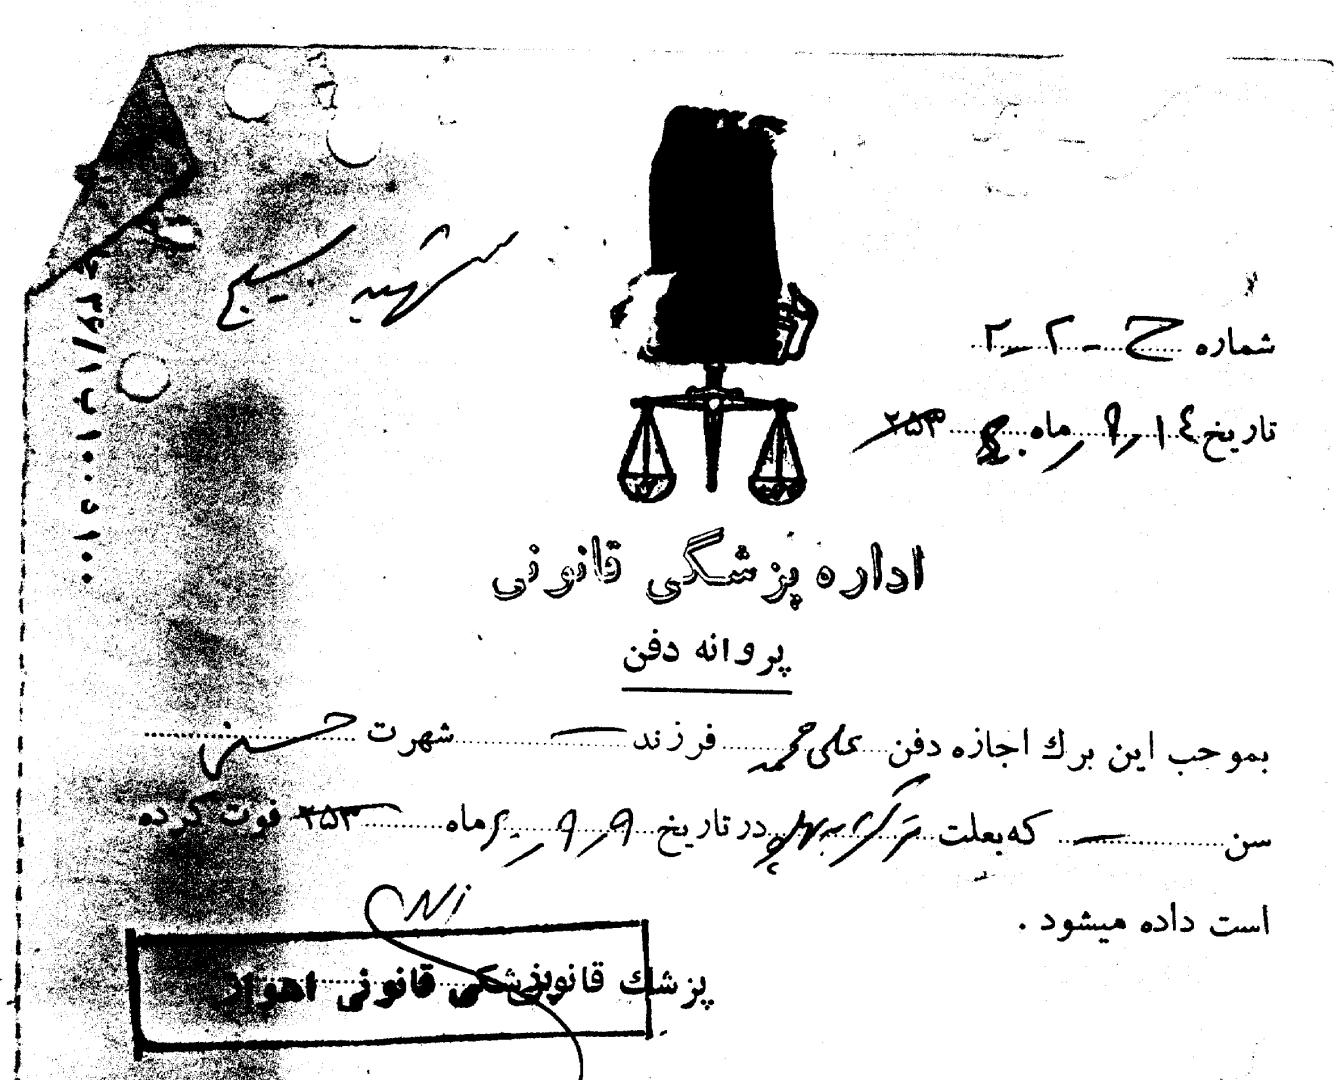 شهید بسیج
شماره ح - ۲ - ۲
تاریخ ۱۴ / ۹ / ماه ۲۵۳
اداره پزشگی قانونی
پروانه دفن
بموجب این برك اجازه دفن علی محمد فرزند شهرت
سن که بعلت در تاریخ ۹ / ۹ / ماه ۲۵۳ فوت کرده
است داده میشود .
پزشك قانونی
پزشکی قانونی اهواز